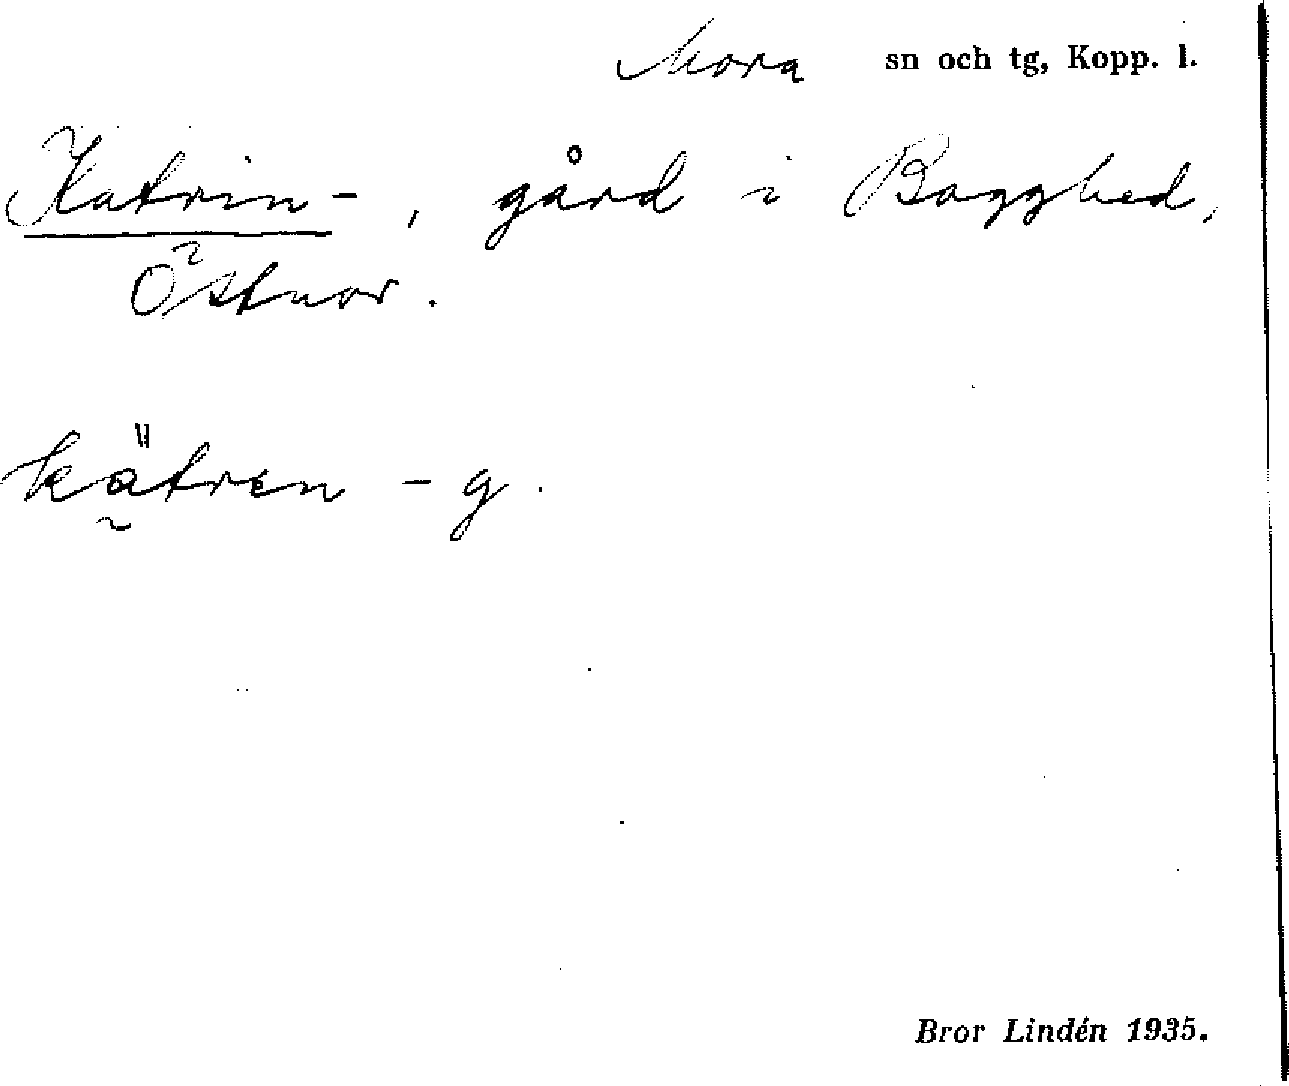 Mora sn och tg, Kopp. l.
Katrin-, gård i Bagghed,
Östnor.
kätren - g.
Bror Lindén 1935.